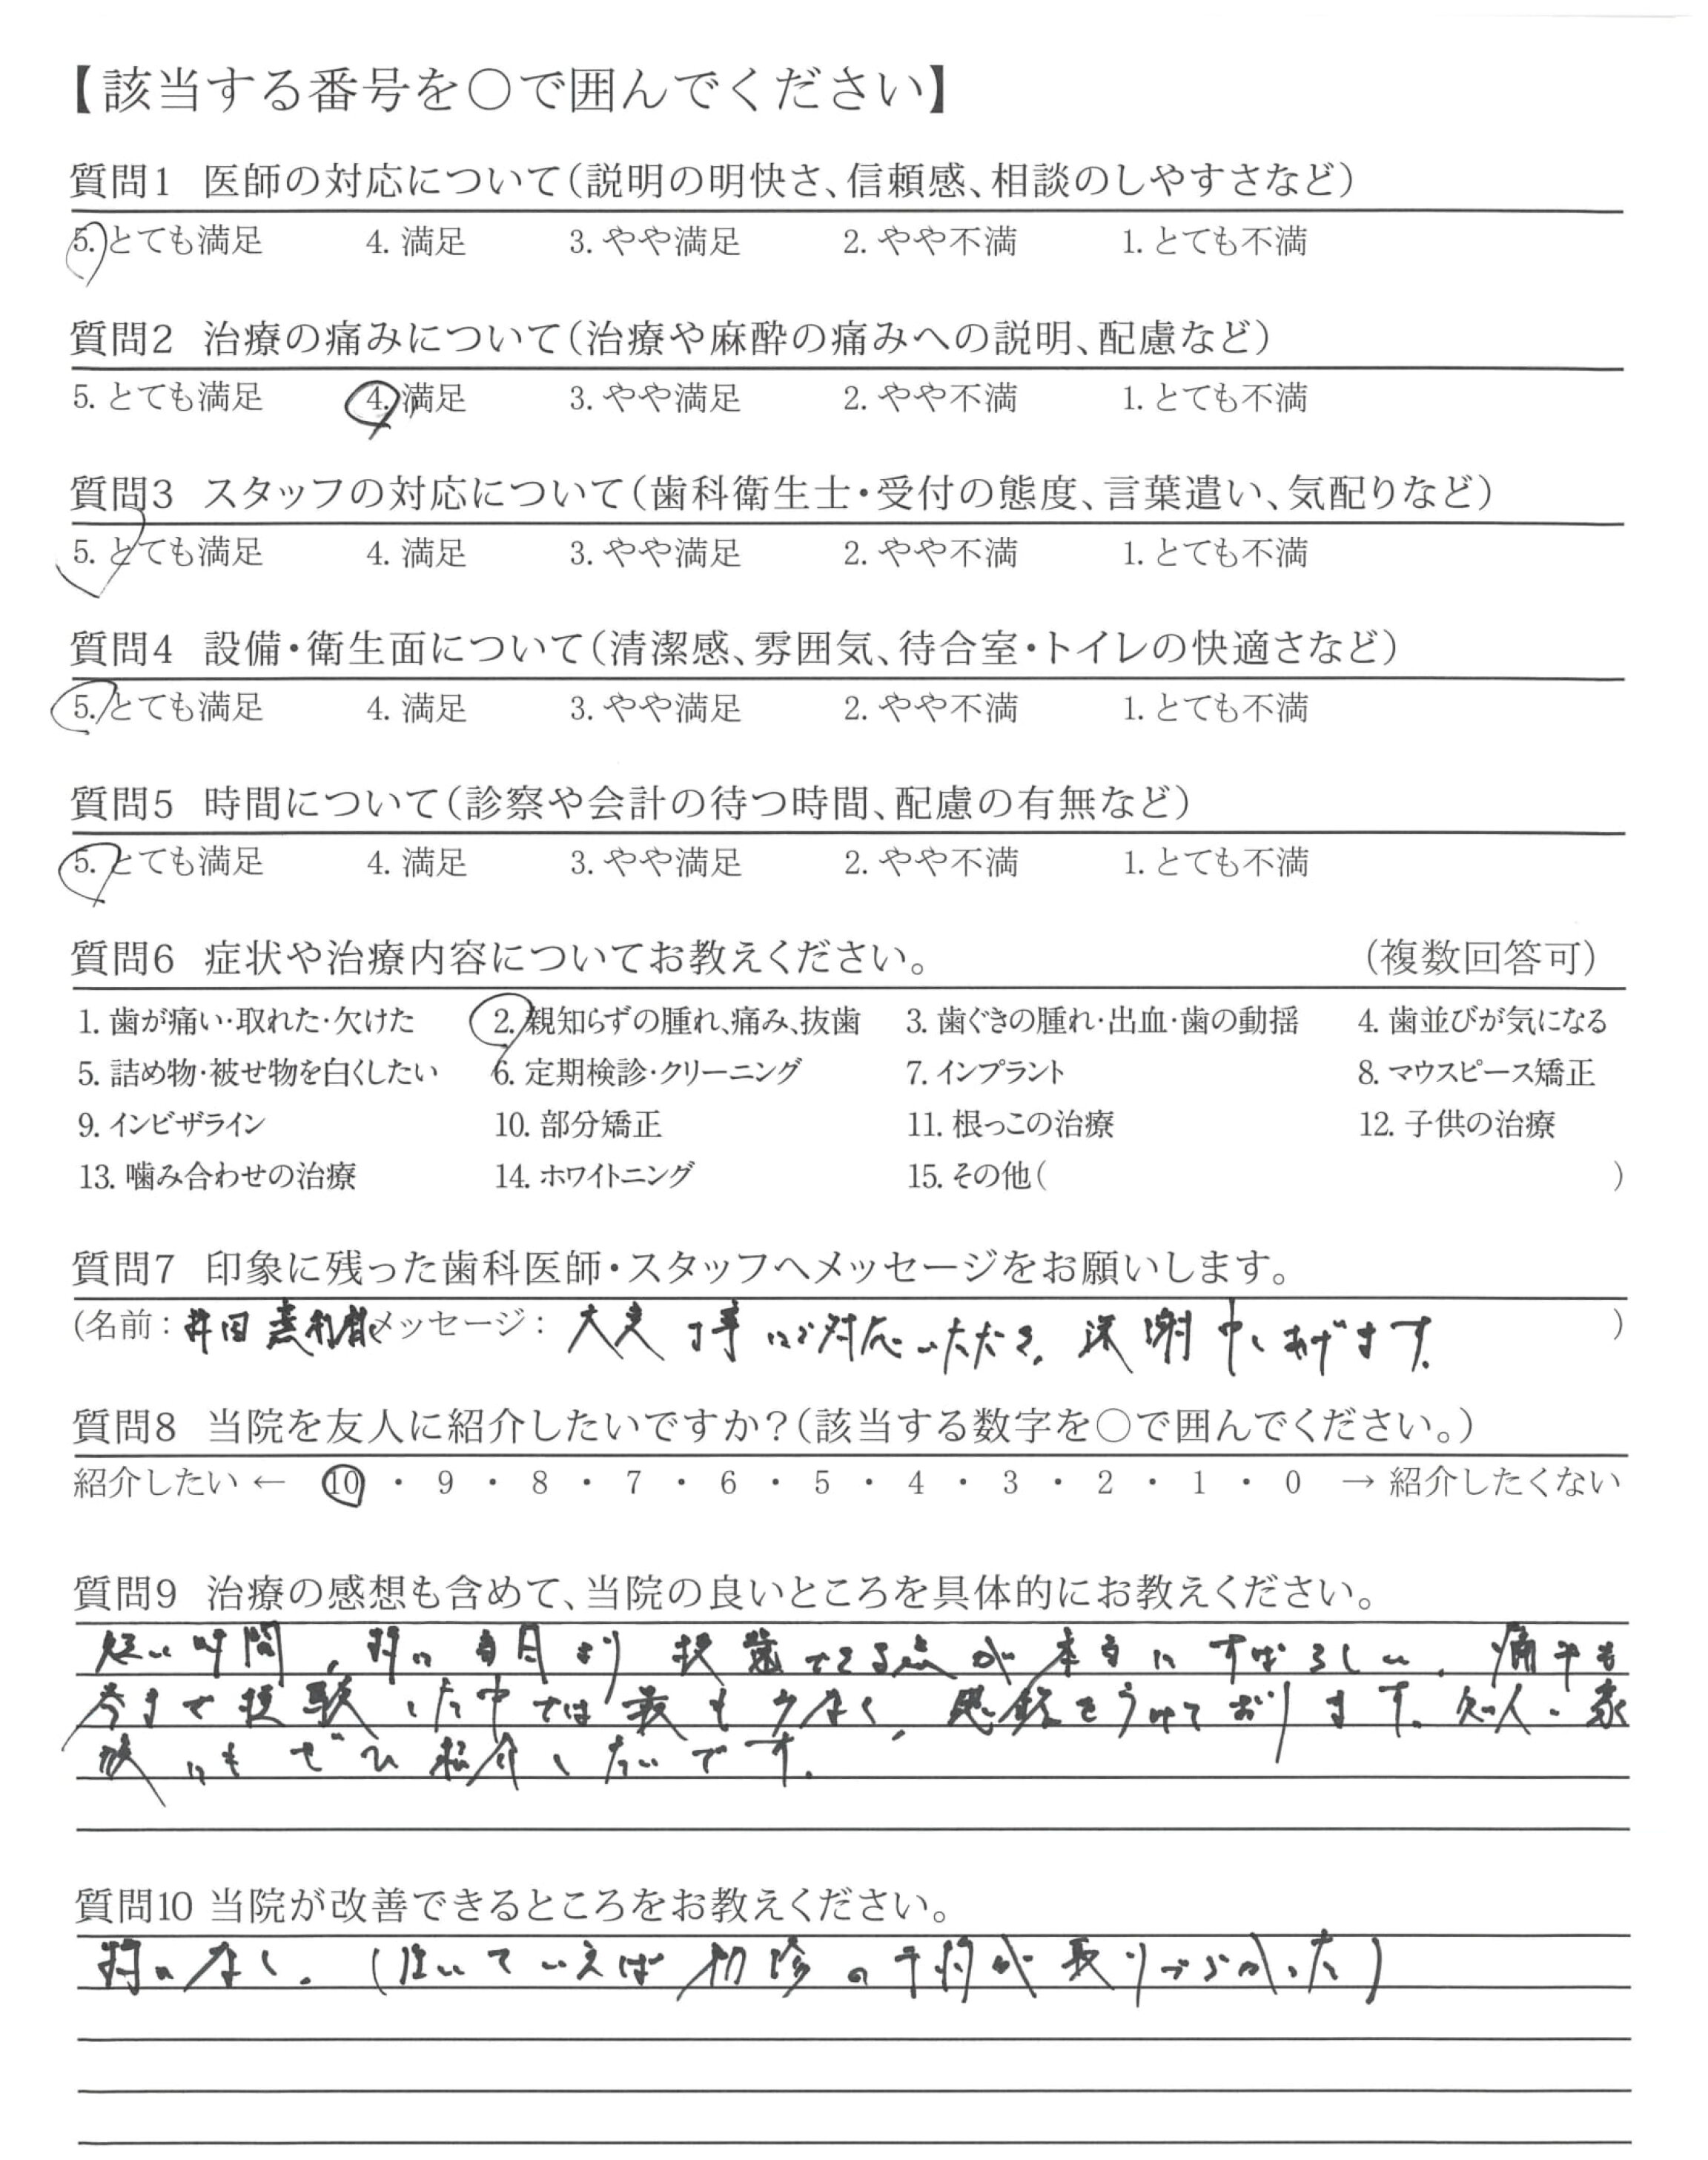 【該当する番号を〇で囲んでください】
質問1 医師の対応について(説明の明快さ、信頼感、相談のしやすさなど)
5. とても満足 4. 満足 3. やや満足 2. やや不満 1. とても不満
質問2 治療の痛みについて(治療や麻酔の痛みへの説明、配慮など)
5. とても満足 4. 満足 3. やや満足 2. やや不満 1. とても不満
質問3 スタッフの対応について(歯科衛生士・受付の態度、言葉遣い、気配りなど)
5. とても満足 4. 満足 3. やや満足 2. やや不満 1. とても不満
質問4 設備・衛生面について(清潔感、雰囲気、待合室・トイレの快適さなど)
5. とても満足 4. 満足 3. やや満足 2. やや不満 1. とても不満
質問5 時間について(診察や会計の待つ時間、配慮の有無など)
5. とても満足 4. 満足 3. やや満足 2. やや不満 1. とても不満
質問6 症状や治療内容についてお教えください。 (複数回答可)
1. 歯が痛い・取れた・欠けた 2. 親知らずの腫れ、痛み、抜歯 3. 歯ぐきの腫れ・出血・歯の動揺 4. 歯並びが気になる
5. 詰め物・被せ物を白くしたい 6. 定期検診・クリーニング 7. インプラント 8. マウスピース矯正
9. インビザライン 10. 部分矯正 11. 根っこの治療 12. 子供の治療
13. 噛み合わせの治療 14. ホワイトニング 15. その他( )
質問7 印象に残った歯科医師・スタッフへメッセージをお願いします。
(名前: 井田 メッセージ: 大変丁寧にご対応いただき、深謝申しあげます。 )
質問8 当院を友人に紹介したいですか?(該当する数字を〇で囲んでください。)
紹介したい ← 10 ・ 9 ・ 8 ・ 7 ・ 6 ・ 5 ・ 4 ・ 3 ・ 2 ・ 1 ・ 0 → 紹介したくない
質問9 治療の感想も含めて、当院の良いところを具体的にお教えください。
短い時間、特に当日より抜歯できる点が本当にすばらしい。痛みも
今まで経験した中では最も少なく、感銘をうけております。知人・家
族にもぜひ紹介したいです。
質問10 当院が改善できるところをお教えください。
特になし。(強いていえば初診の予約が取りづらかった)